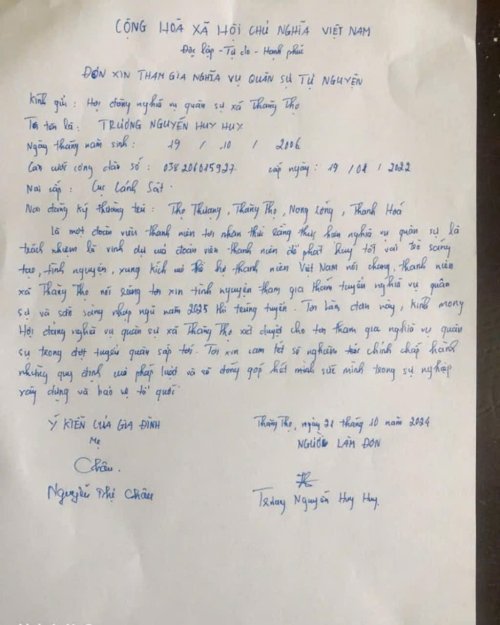 CỘNG HOÀ XÃ HỘI CHỦ NGHĨA VIỆT NAM
Độc lập - Tự do - Hạnh phúc
ĐƠN XIN THAM GIA NGHĨA VỤ QUÂN SỰ TỰ NGUYỆN
Kính gửi : Hội đồng nghĩa vụ quân sự xã Thăng Thọ
Tôi tên là : TRƯƠNG NGUYỄN HUY HUY
Ngày tháng năm sinh : 19 / 10 / 2006
Căn cước công dân số : 038206015927 cấp ngày : 19 / 01 / 2022
Nơi cấp : Cục Cảnh Sát.
Nơi đăng ký thường trú : Thọ Thượng, Thăng Thọ, Nông Cống, Thanh Hoá
Là một đoàn viên thanh niên tôi nhận thức rằng thực hiện nghĩa vụ quân sự là
trách nhiệm là vinh dự mà đoàn viên thanh niên để phát huy tốt vai trò sáng
tạo, tình nguyện, xung kích thế hệ thanh niên Việt Nam nói chung, thanh niên
xã Thăng Thọ nói riêng tôi xin tình nguyện tham gia khám tuyển nghĩa vụ quân
sự và sẵn sàng nhập ngũ năm 2025 khi trúng tuyển. Tôi làm đơn này, kính mong
Hội đồng nghĩa vụ quân sự xã Thăng Thọ xét duyệt cho tôi tham gia nghĩa vụ quân
sự trong đợt tuyển quân sắp tới. Tôi xin cam kết sẽ nghiêm túc chính chấp hành
những quy định của pháp luật và sẽ đóng góp hết mình sức mình trong sự nghiệp
xây dựng và bảo vệ tổ quốc
Ý KIẾN CỦA GIA ĐÌNH
Mẹ
Châu.
Nguyễn Thị Châu
Thăng Thọ, ngày 21 tháng 10 năm 2024
NGƯỜI LÀM ĐƠN
Trương Nguyễn Huy Huy